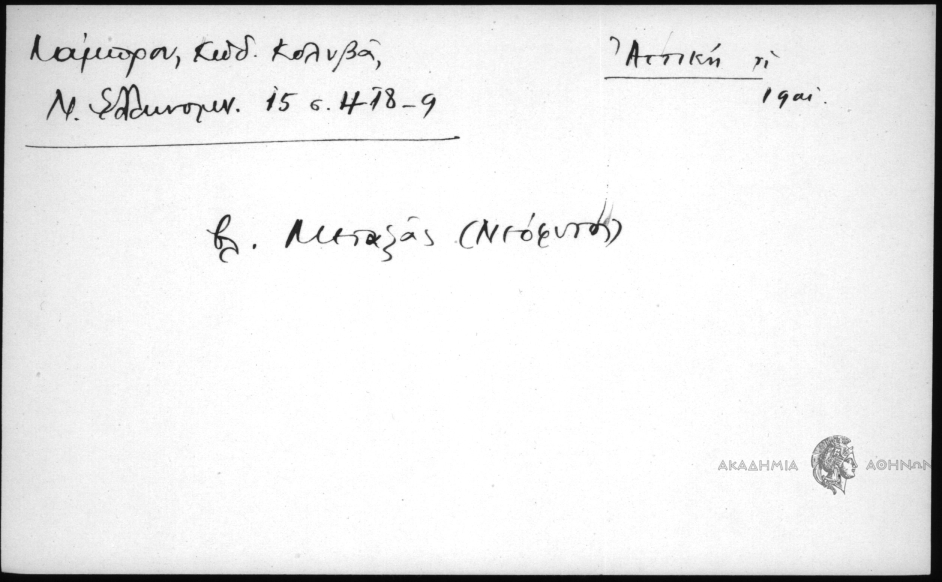 Λάμπρου, Κώδ. Κολυβᾶ,
Ν. Ἑλληνομν. 15 σ. 418-9
Ἀττική
19 αἰ.
βλ. Μεταξᾶς (Νεόφυτος)
ΑΚΑΔΗΜΙΑ ΑΘΗΝΩΝ